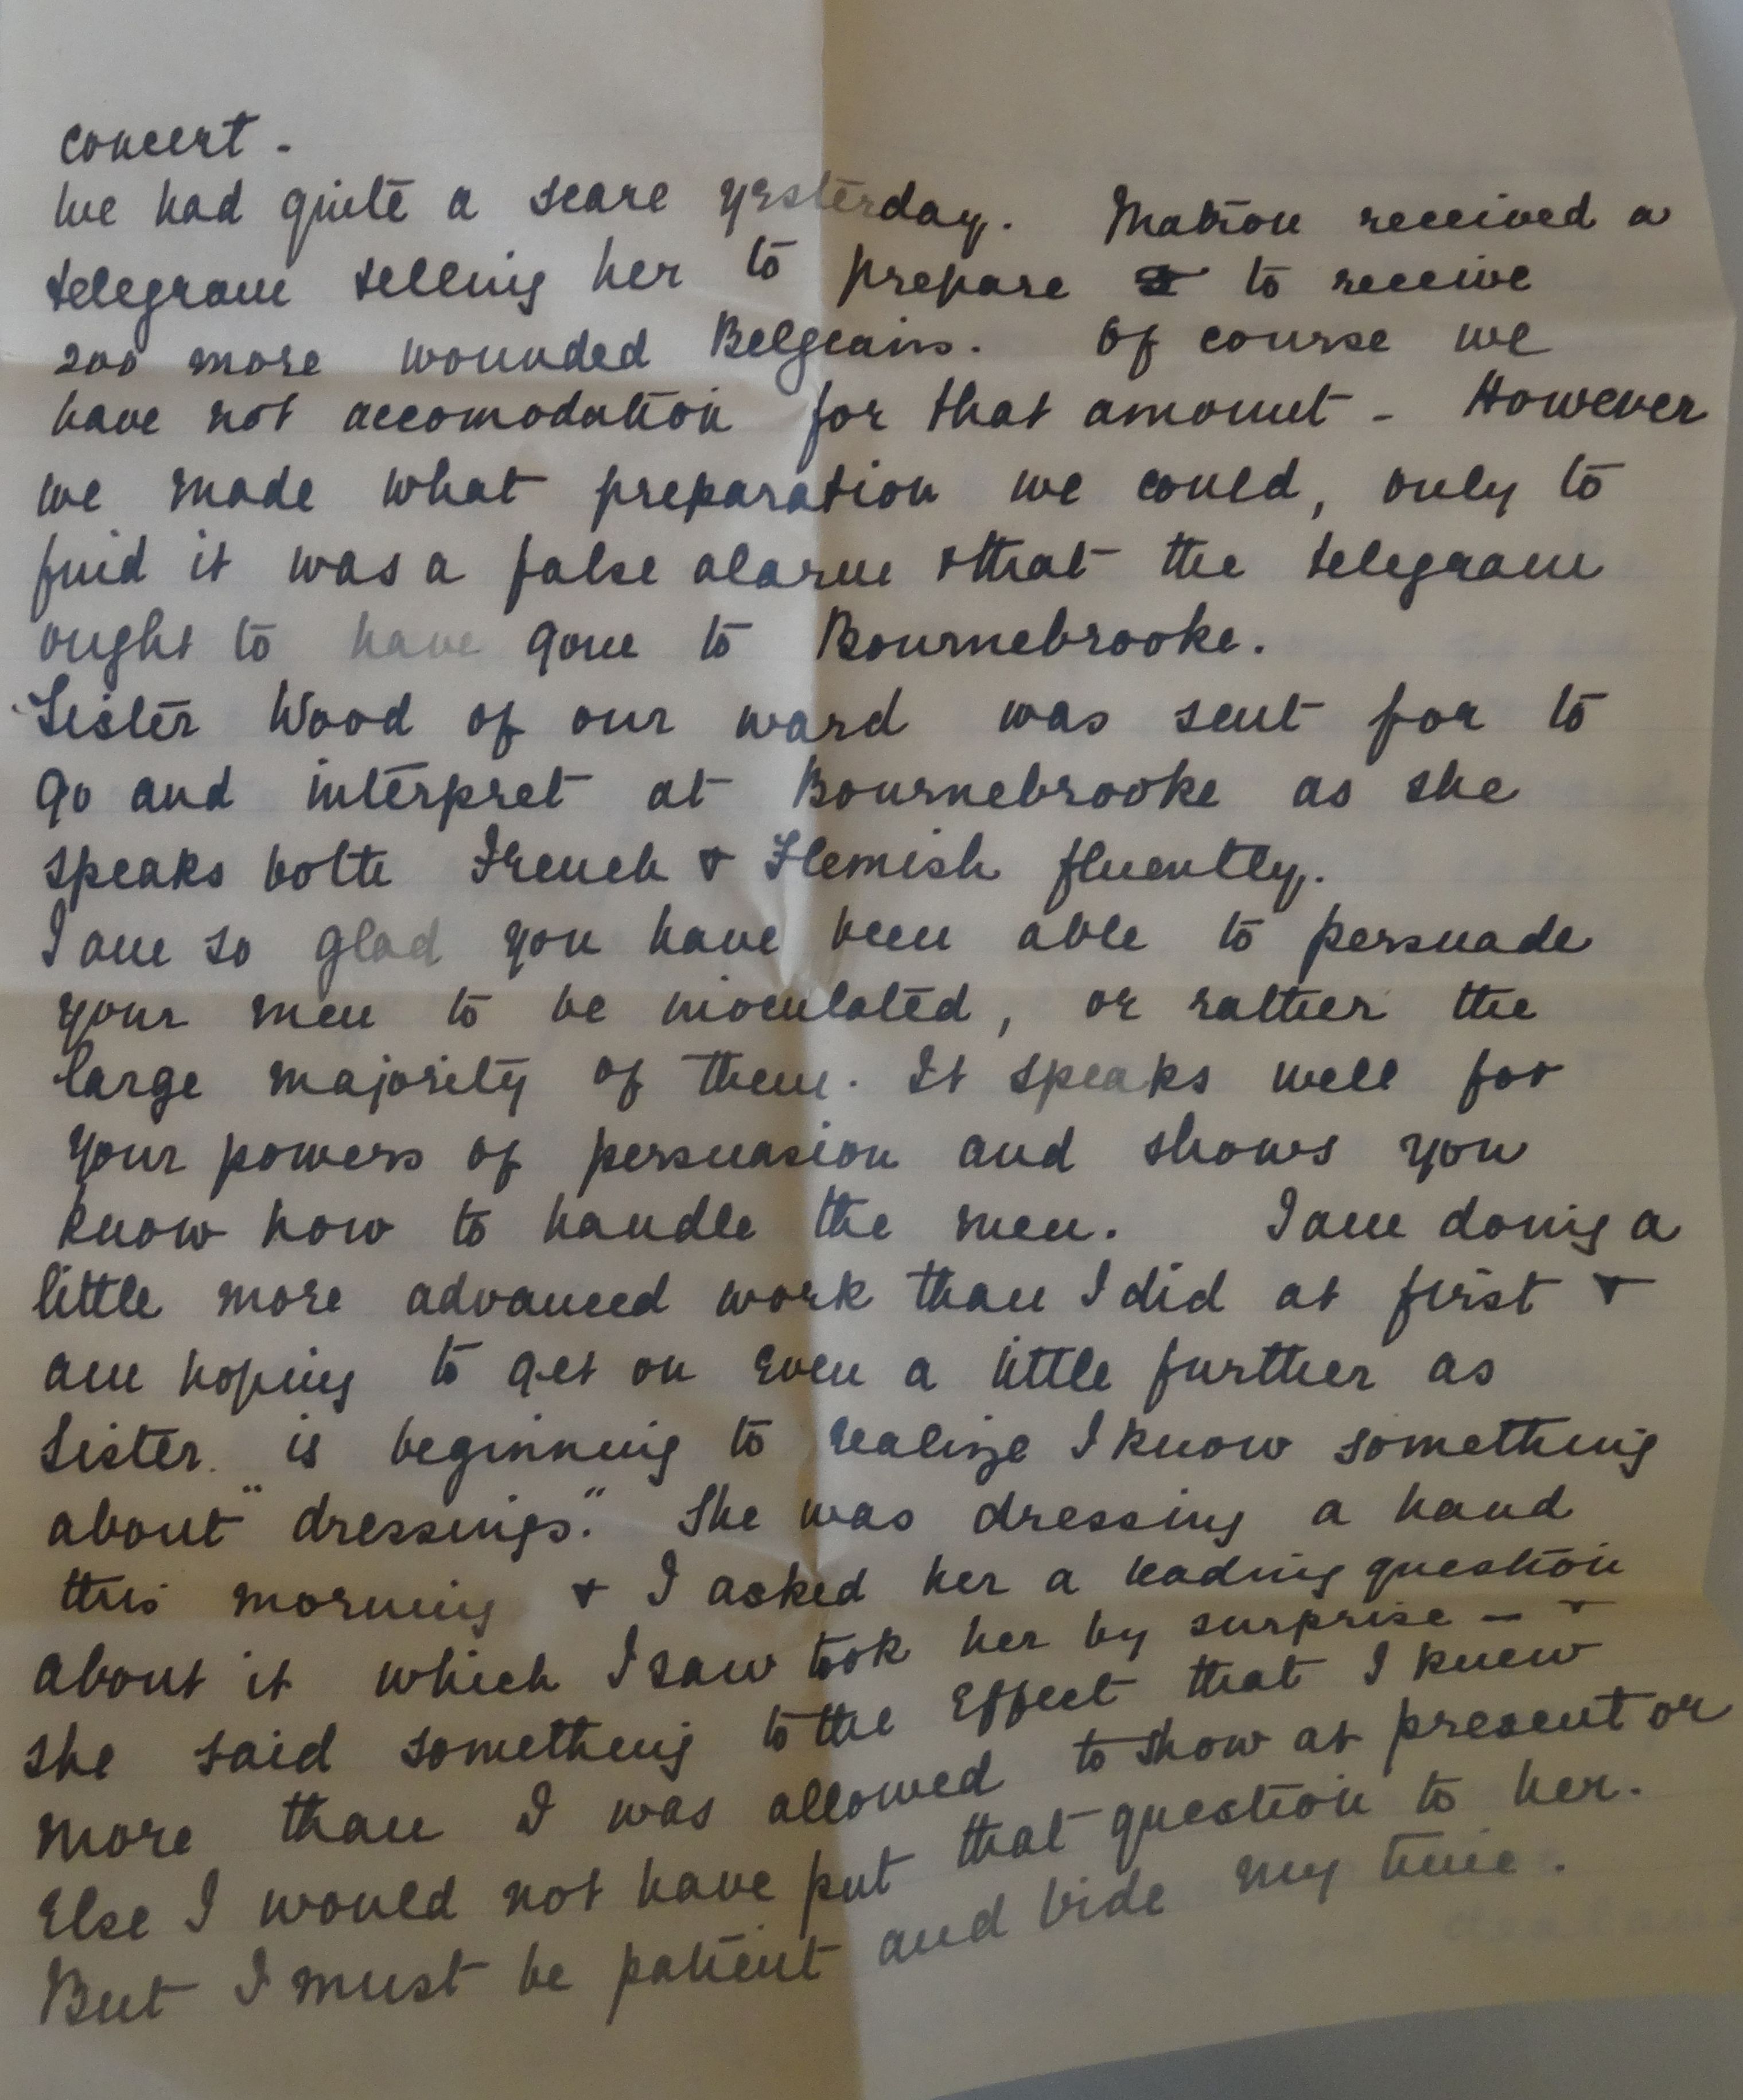 concert -
We had quite a scare yesterday. Matron received a
telegram telling her to prepare to receive
200 more wounded Belgeains. Of course we
have not accomodation for that amount - However
we made what preparation we could, only to
find it was a false alarm & that the telegram
ought to have gone to Bournebrooke.
Sister Wood of our ward was sent for to
go and interpret at Bournebrooke as she
speaks both French & Flemish fluently.
I am so glad you have been able to persuade
your men to be inoculated, or rather the
large majority of them. It speaks well for
your powers of persuasion and shows you
know how to handle the men. I am doing a
little more advanced work than I did at first &
am hoping to get on even a little further as
Sister is beginning to realize I know something
about "dressings." She was dressing a hand
this morning & I asked her a leading question
about it which I saw took her by surprise - &
she said something to the effect that I knew
more than I was allowed to show at present or
else I would not have put that question to her.
But I must be patient and bide my time.